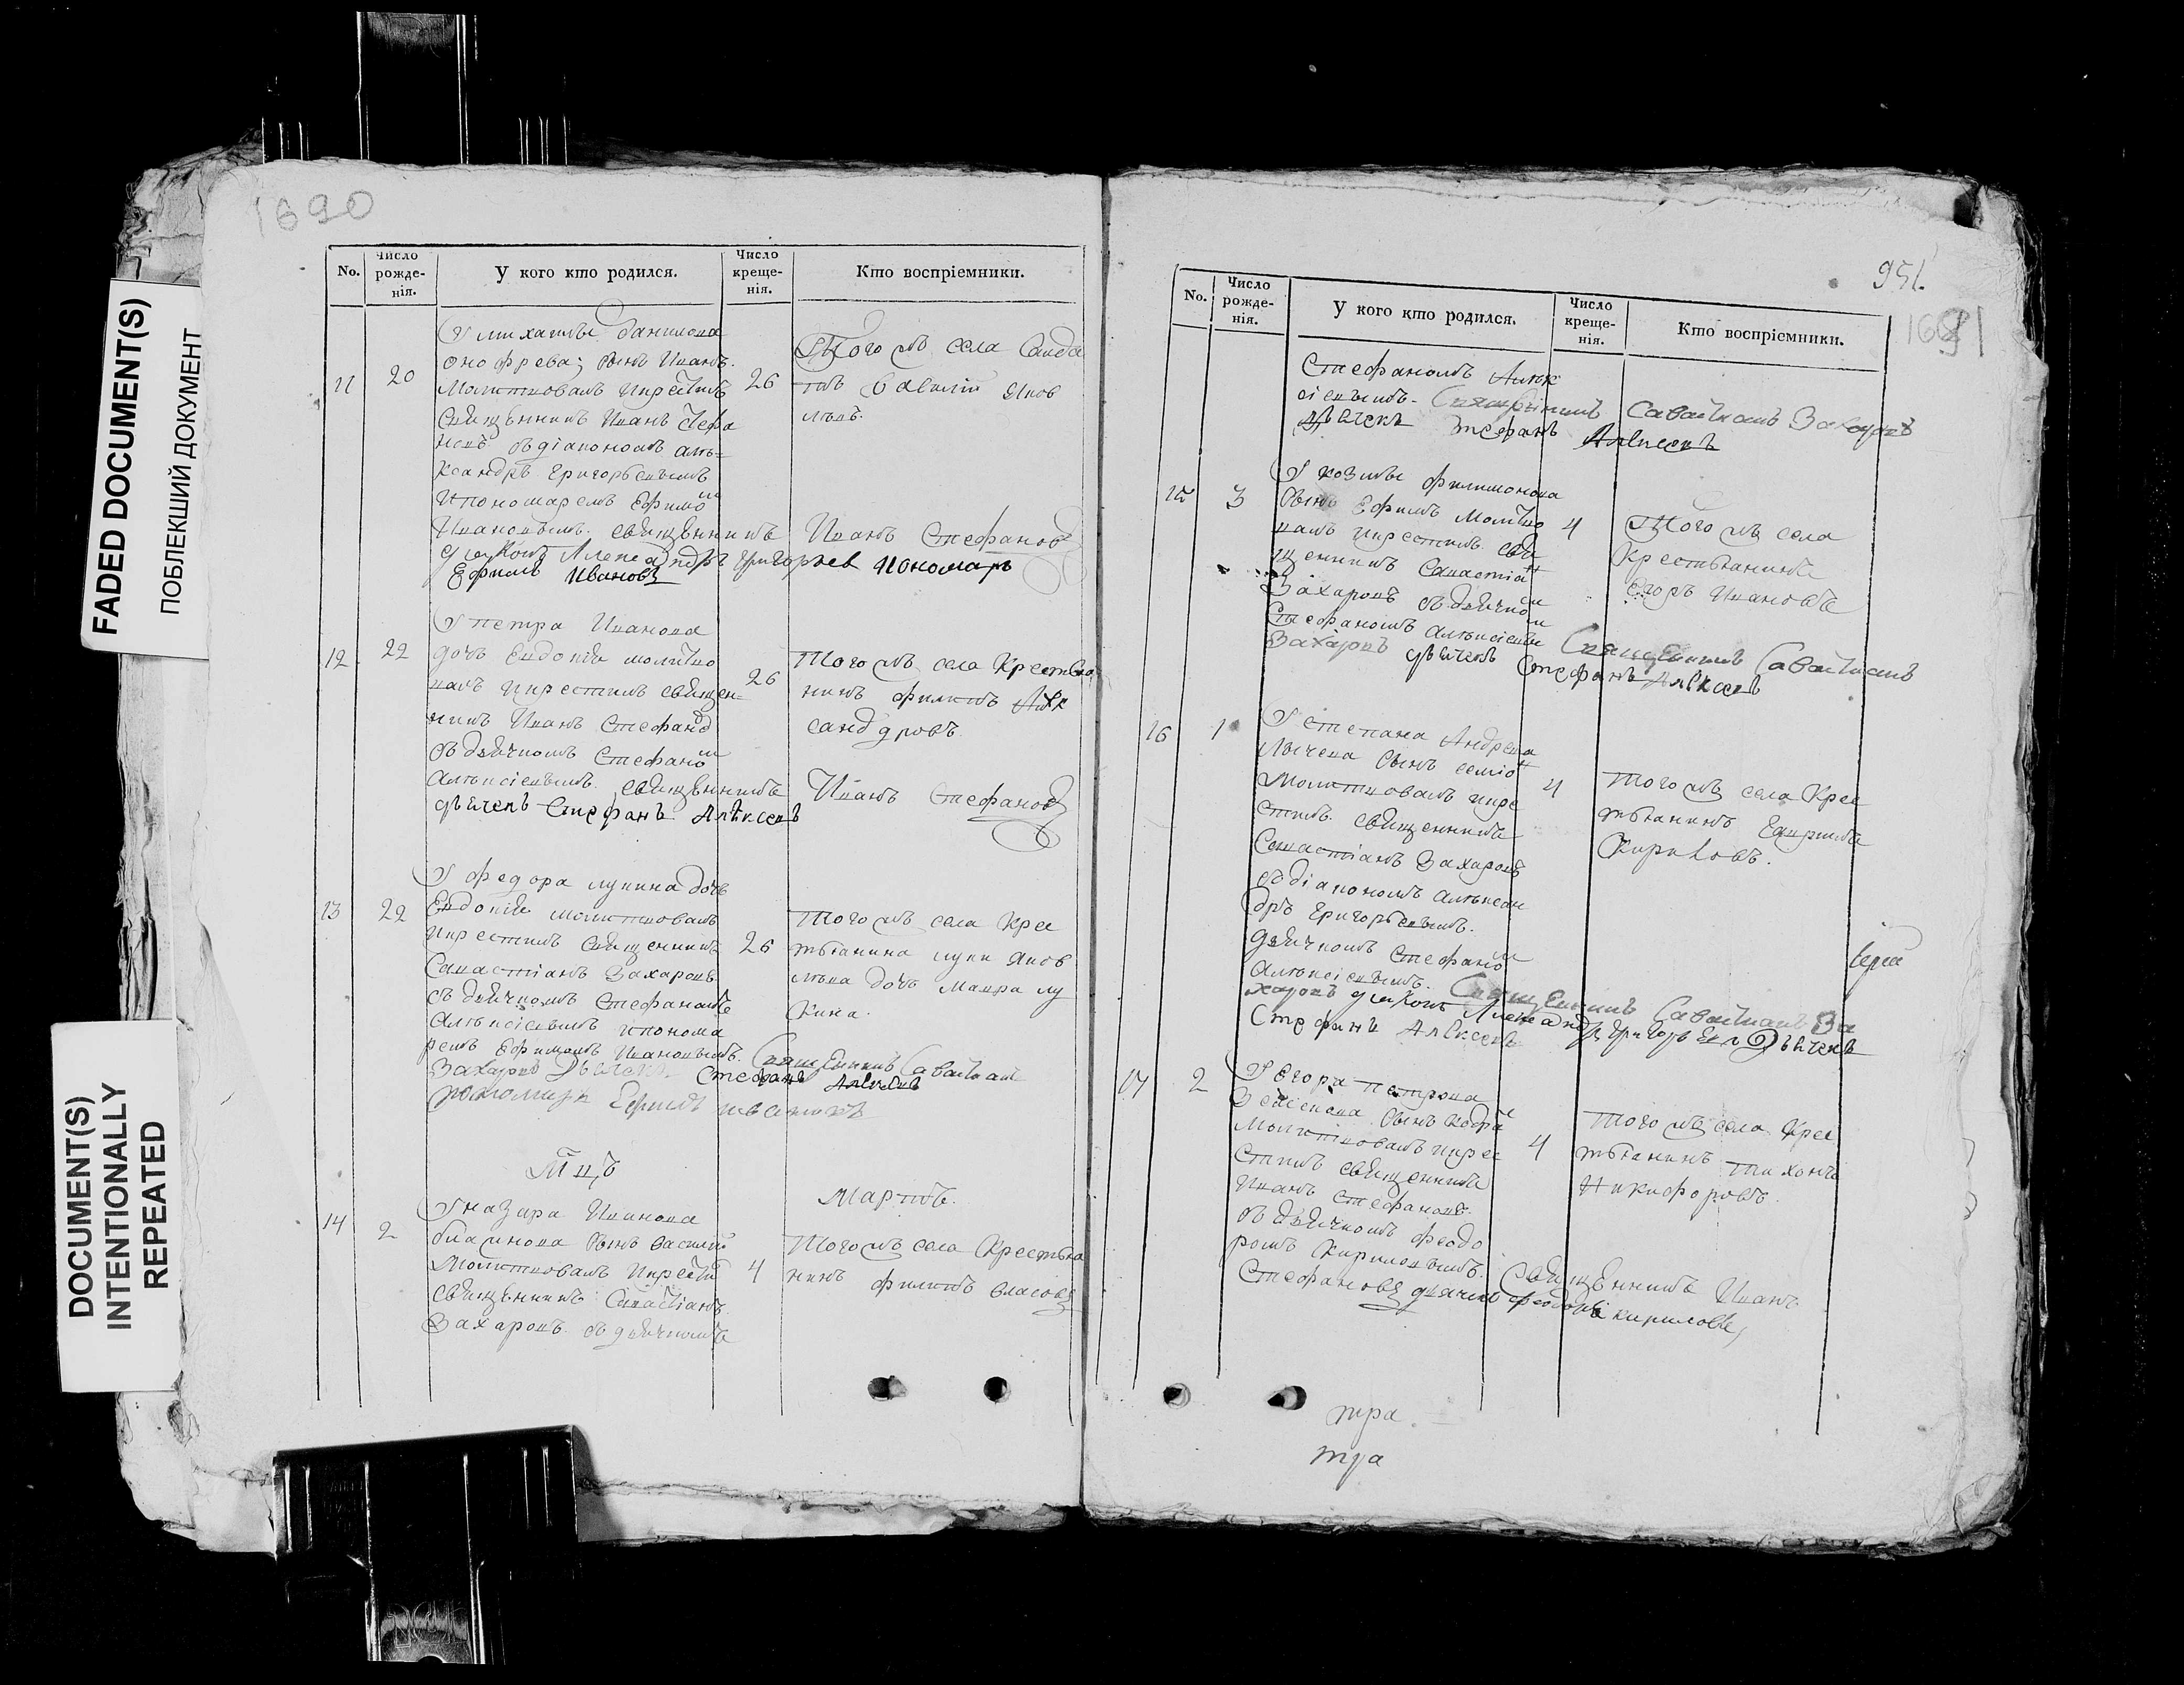 FADED DOCUMENT(S)
ПОБЛЕКШИЙ ДОКУМЕНТ
DOCUMENT(S)
INTENTIONALLY
REPEATED
1690
No.
Число рожде-нія.
У кого кто родился.
Число креще-нія.
Кто воспріемники.
У михаилы данилова
онофрева; сынъ Иванъ.
11 20 Молитвовалъ икрестилъ 26
священникъ Иванъ Стефа
новъ съдіакономъ але-
ксандръ григорьевымъ
ипономаремъ Ефимом
Ивановымъ. священникъ Иванъ Стефановъ
дияконъ Александръ григорьев пономарь
Ефимъ Ивановъ
Того жъ села солда
тъ Василій Яков
левъ.
У петра Иванова
12 22 дочь Евдокія молитво
валъ икрестилъ священ-
никъ Иванъ Стефанов
съ дьячкомъ Стефаном
алексіевымъ. священникъ Иванъ Стефановъ
дьячекъ Стефанъ Алексеевъ
26 Того жъ села Крестья
нинъ филипъ Алек
сандровъ.
У федора лукина дочь
13 22 Евдокія молитвовалъ
икрестилъ священникъ 26
Савастіанъ Захаровъ
съ дьячкомъ Стефаномъ
алексіевымъ ипонома
ремъ Ефимомъ Ивановымъ. Священникъ Савастиан
Захаровъ Дьячекъ Стефанъ Алексеевъ
пономарь Ефимъ ивановъ
Того жъ села Крес
тьянина луки Яков
лева дочь Мавра лу
кина.
М-цъ
Мартъ.
У назара Иванова
14 2 сынъ василій
Молитвовалъ икрестил 4
священникъ Савастіанъ
Захаровъ. съ дьячкомъ
Того жъ села Крестья
нинъ филипъ власовъ
951.
1691
No.
Число рожде-нія.
У кого кто родился.
Число креще-нія.
Кто воспріемники.
Стефаномъ Алек
сіевымъ. Священникъ Савастианъ Захаровъ
дьячекъ Стефанъ Алексеевъ
У козмы филимонова
15 3 сынъ Ефимъ Молитво 4
валъ икрестилъ. свя
щенникъ Савастіан
Захаровъ съ дьячком
Стефаномъ алексіевым Священникъ Савастианъ
Захаровъ дьячекъ Стефанъ Алексеевъ
Того жъ села
Крестьянинъ
Егоръ Ивановъ
У степана Андрева
16 1 сынъ семіон
Молитвовалъ икре 4
стилъ. священникъ
Савастіанъ Захаровъ
съдіакономъ алексан
дръ григорьевымъ.
дьячкомъ Стефаном
алексіевымъ. Священникъ Савастианъ За
харовъ дияконъ Александръ григорьевъ Дьячекъ
Стефанъ Алексеевъ
Того жъ села Крес
тьянинъ
Кириловъ.
У Егора петрова
17 2 сынъ
Молитвовалъ икрес 4
стилъ священникъ
Иванъ стефановъ.
съ дьячкомъ феодо
ромъ Кириловымъ. Священникъ Иванъ
Стефановъ дьячекъ феодоръ кириловъ
Того жъ села Крес
тьянинъ тихонъ
Никифоровъ.
тра
тра